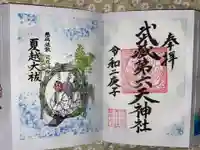 奉拝
武蔵第六天神社
令和二庚子
夏越大祓